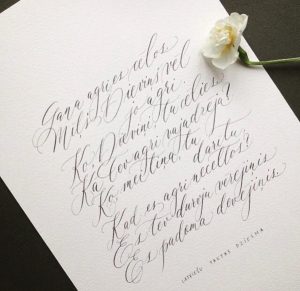 Gana agri es cēlos
Mīļš Dieviņš vēl
jo agri.
Ko, Dieviņ, tu cēlies
Kā tev agri vajadzēja?
Ko, meitiņa, tu
darītu,
Kad es agri neceltos?
Es tev durvju vērējiņis
Es padoma devējiņis.
LATVIEŠU TAUTAS DZIESMA